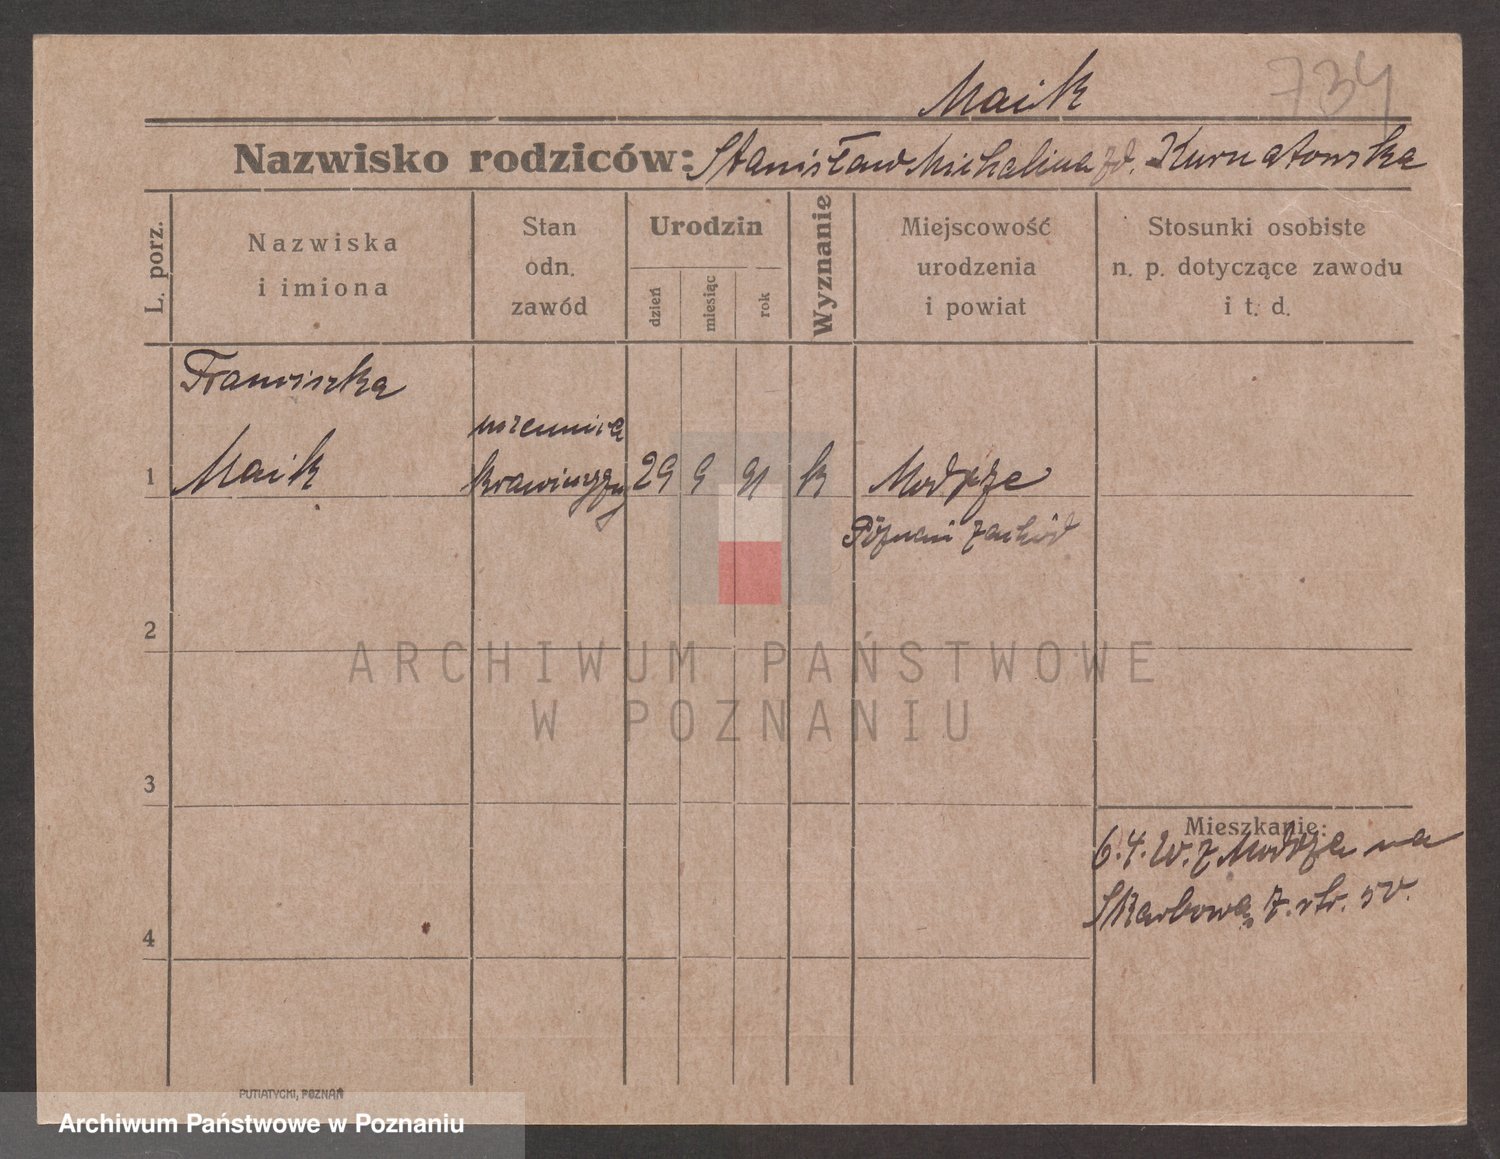 Maik
734
Nazwisko rodziców: Stanisław Michalina zd. Kurnatowska
L. porz.
Nazwiska
i imiona
Stan
odn.
zawód
Urodzin
dzień
miesiąc
rok
Wyznanie
Miejscowość
urodzenia
i powiat
Stosunki osobiste
n. p. dotyczące zawodu
i t. d.
Franciszka
uczennica
1 Maik krawieczyzny 29 9 91 k Modrze
Poznań zachód
2
ARCHIWUM PAŃSTWOWE
W POZNANIU
3
Mieszkanie:
6.4. z Modrze na
Skarbową 7. str.
4
PUTIATYCKI, POZNAŃ
Archiwum Państwowe w Poznaniu